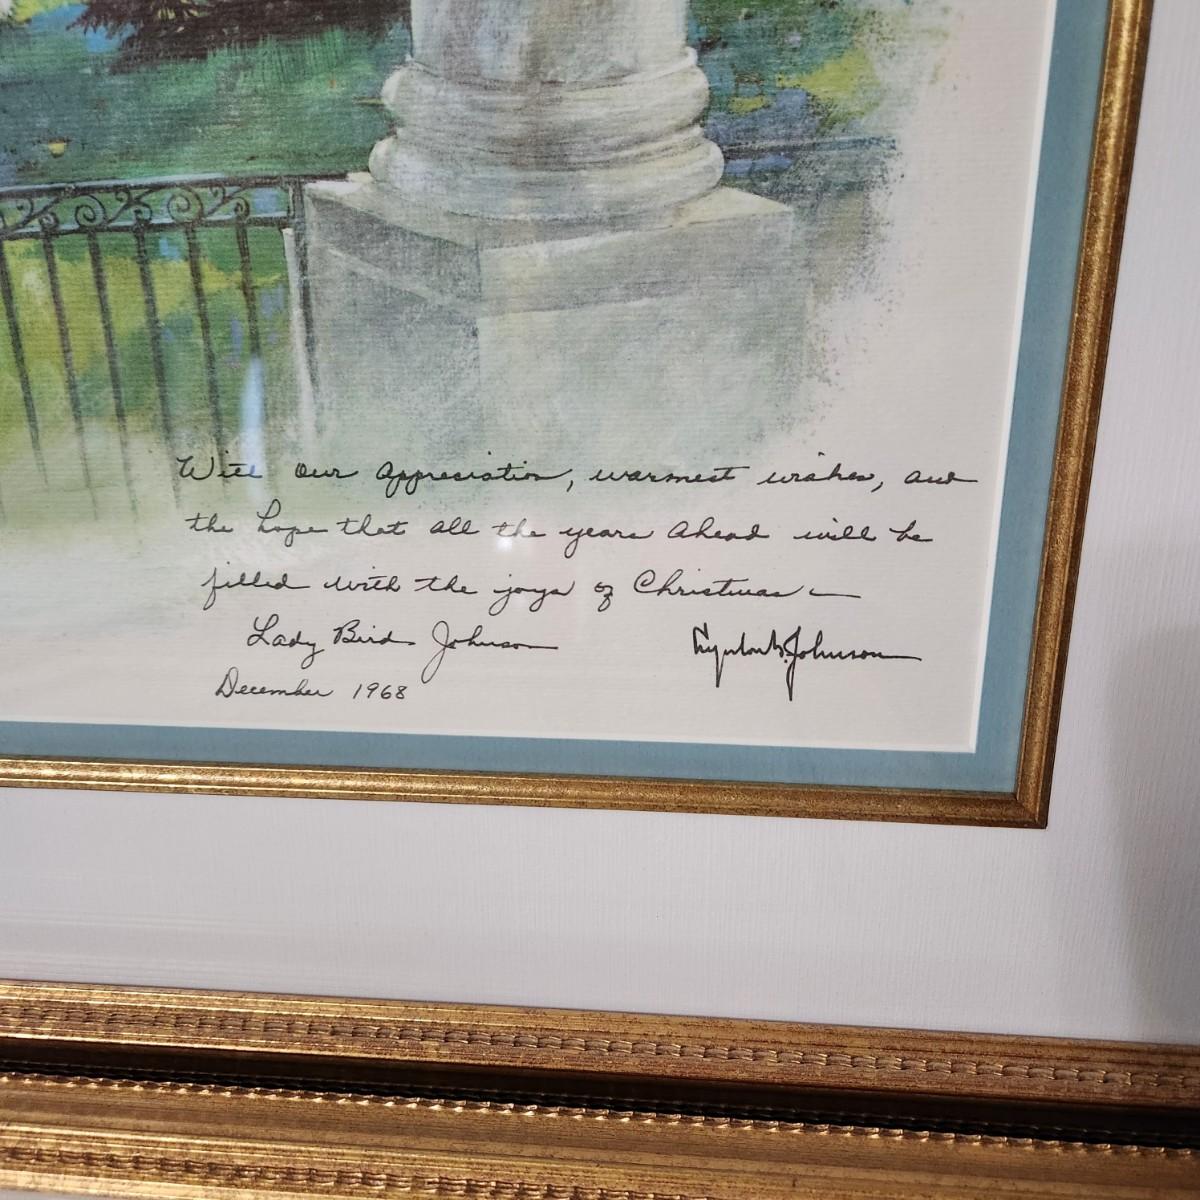 With our appreciation, warmest wishes, and
the hope that all the years ahead will be
filled with the joys of Christmas —
Lady Bird Johnson Lyndon B. Johnson
December 1968